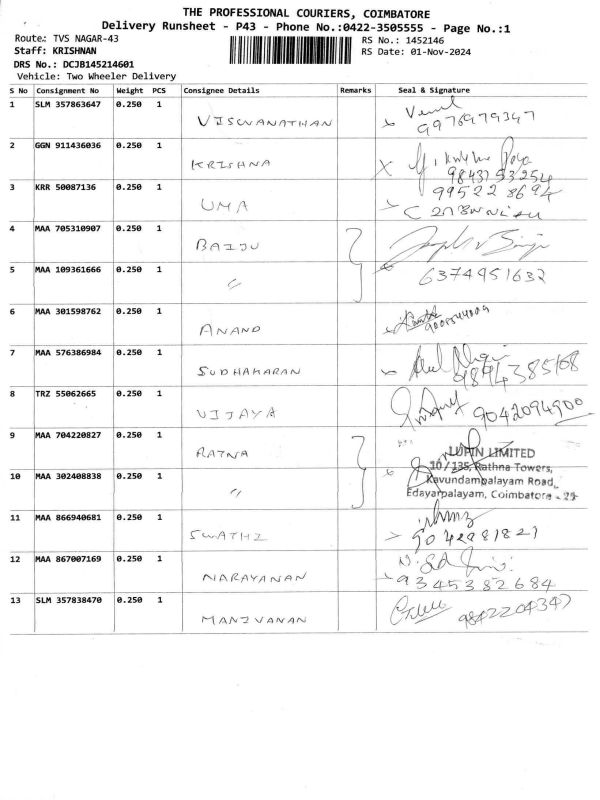 THE PROFESSIONAL COURIERS, COIMBATORE
Delivery Runsheet - P43 - Phone No.:0422-3505555 - Page No.:1
Route: TVS NAGAR-43
RS No.: 1452146
Staff: KRISHNAN
RS Date: 01-Nov-2024
DRS No.: DCJB145214601
Vehicle: Two Wheeler Delivery
S No Consignment No Weight PCS Consignee Details Remarks Seal & Signature
1 SLM 357863647 0.250 1 VISWANATHAN
9976979347
2 GGN 911436036 0.250 1 KRISHNA
9843753254
3 KRR 50087136 0.250 1 UMA
99522 28694
4 MAA 705310907 0.250 1 BAIJU
5 MAA 109361666 0.250 1 〃 6374951632
6 MAA 301598762 0.250 1 ANAND
7 MAA 576386984 0.250 1 SUDHAKARAN
9894385168
8 TRZ 55062665 0.250 1 VIJAYA 9042094900
9 MAA 704220827 0.250 1 RATNA
LUPIN LIMITED
10/135, Rathna Towers,
10 MAA 302408838 0.250 1 〃
Kavundampalayam Road,
Edayarpalayam, Coimbatore - 25
11 MAA 866940681 0.250 1 SWATHI
9042981821
12 MAA 867007169 0.250 1 NARAYANAN
9345382684
13 SLM 357838470 0.250 1 MANIVANAN
9842204347